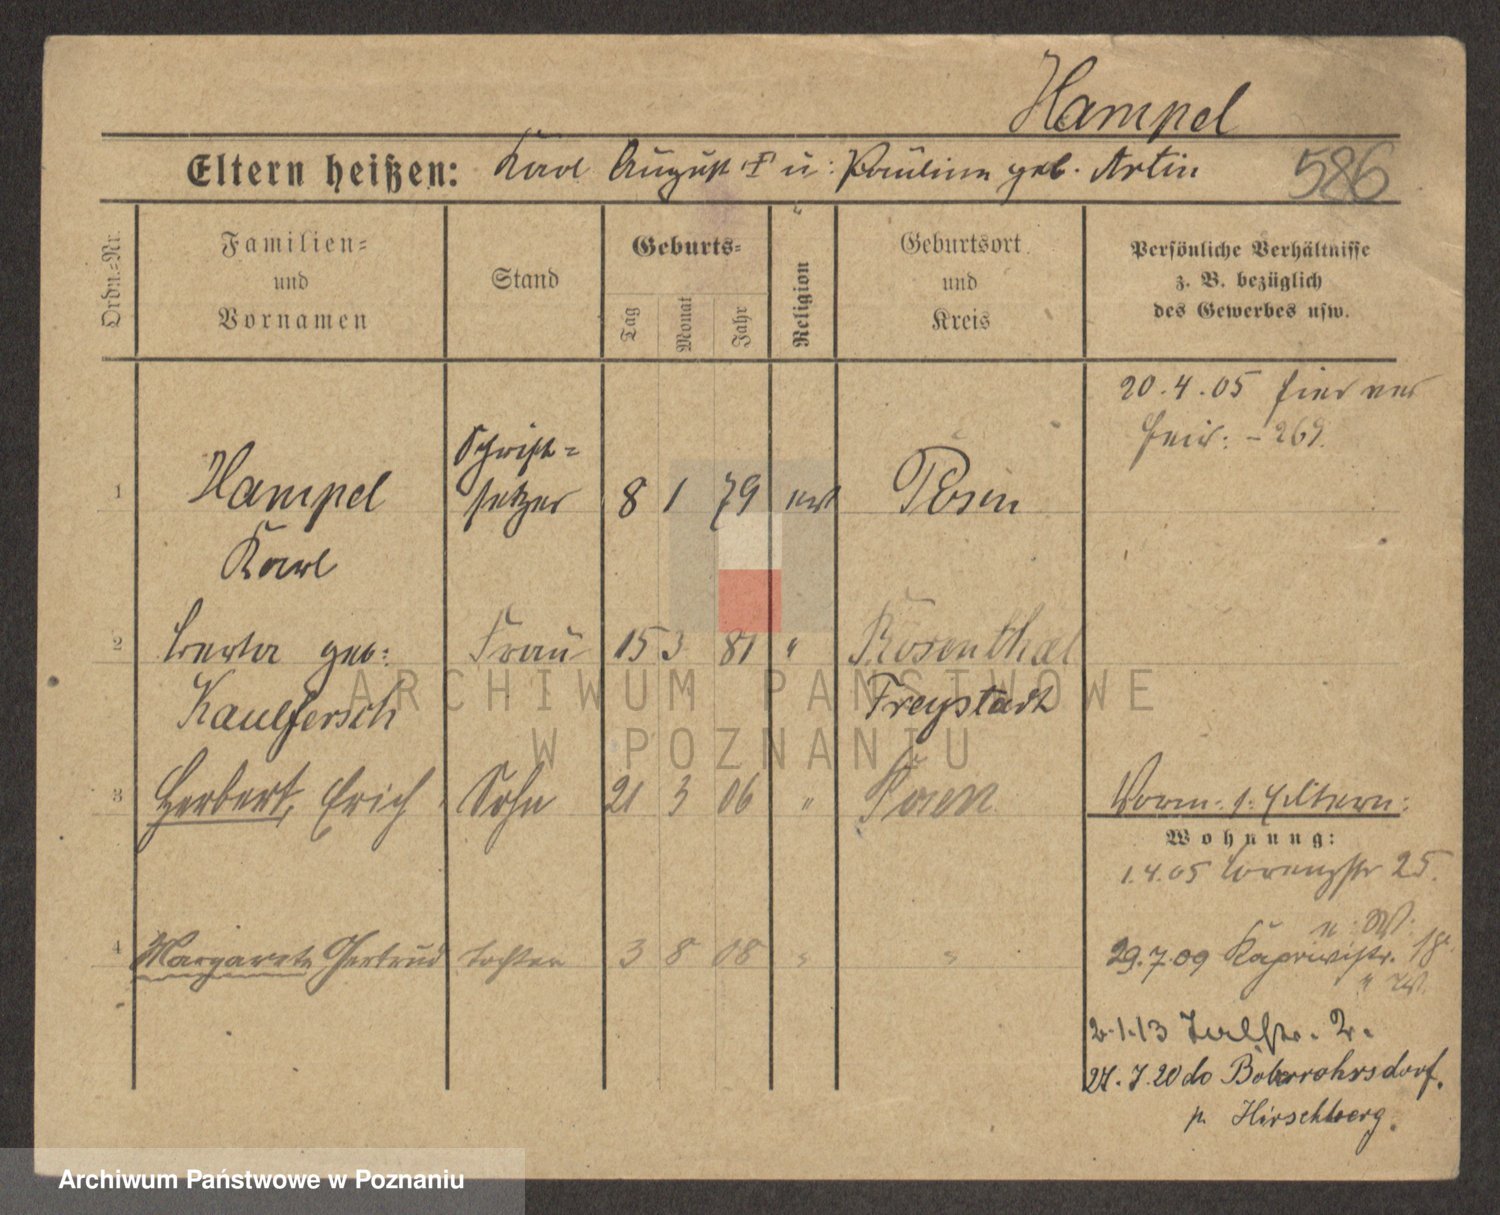 Hampel
Eltern heißen: Karl August † u: Pauline geb. Artin
586
Ordn.=Nr.
Familien=
und
Vornamen
Stand
Geburts=
Tag
Monat
Jahr
Religion
Geburtsort
und
Kreis
Persönliche Verhältnisse
z. B. bezüglich
des Gewerbes usw.
20.4.05 hier
1 Hampel Schrift= 8 1 79 Posen
setzer
Karl
2 Berta geb: Frau 15 3 81 " Rosenthal
Kaulfersch Freystadt
3 Herbert, Erich Sohn 21 3 06 " Posen
Vorm. d. Eltern:
Wohnung:
1.4.05 Lorenzstr 25.
4 Margarete Gertrud Tochter 3 8 08 " "
29.7.09 Kapriwistr. 18
2.1.13 2.
27.7.20 do Boberrohrsdorf.
p. Hirschberg.
ARCHIWUM PAŃSTWOWE
W POZNANIU
Archiwum Państwowe w Poznaniu